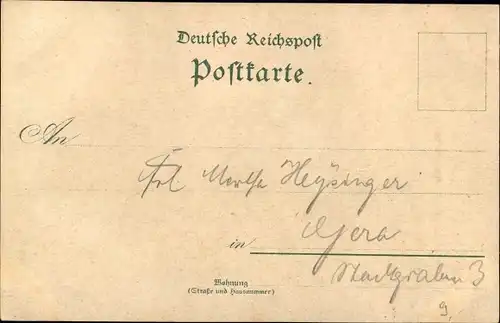 Deutsche Reichspost
Postkarte.
An
Frl. Martha Heysinger
Gera
in
Stadtgraben 3
Wohnung
(Straße und Hausnummer)
9.